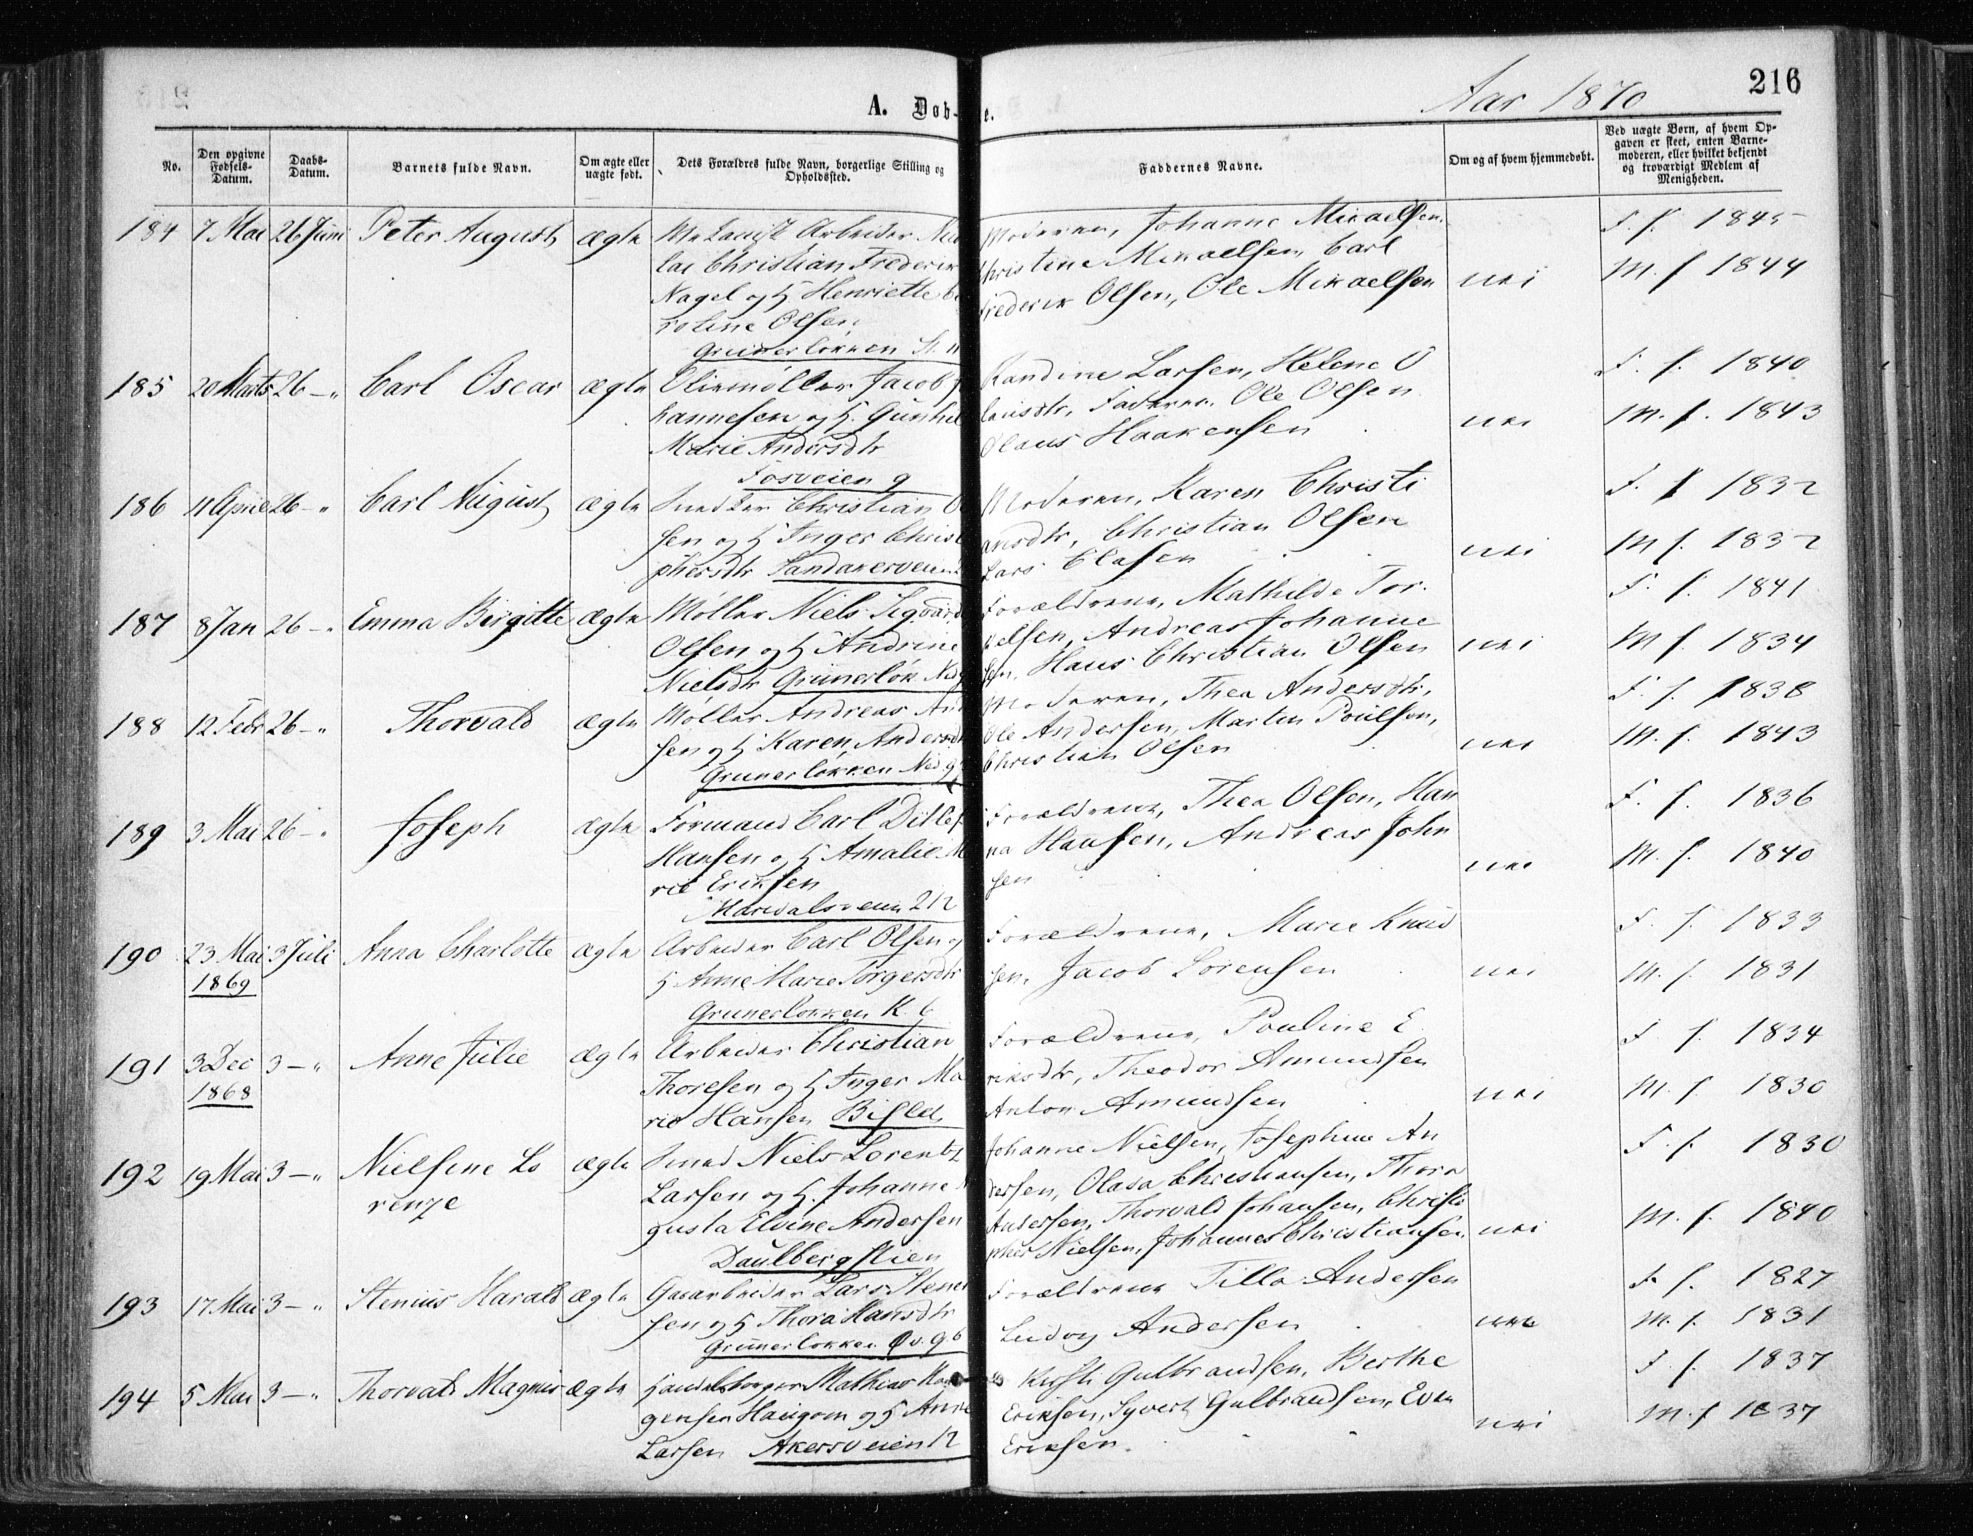 216
Aar 1870
A. Døb-
e.
No.
Den opgivne Fødsels-Datum.
Daabs-Datum.
Barnets fulde Navn.
Om ægte eller uægte født.
Dets Forældres fulde Navn, borgerlige Stilling og Opholdssted.
Faddernes Navne.
Om og af hvem hjemmedøbt.
Ved uægte Børn, af hvem Opgaven er skeet, enten Barnemoderen, eller hvilket bekjendt og troværdigt Medlem af Menigheden.
184 7 Mai 26 Juni Peter August ægte Arbeider
Christian Frederik
Nagel og H Henriette
roline Olsen
Grünerløkken
Moderen, Johanne Mikaelsen,
Christine Mikaelsen, Carl
Frederik Olsen, Ole Mikaelsen nei
F. f. 1845
M. f. 1844
185 20 Marts 26 - " Carl Oscar ægte Oliemøller Jacob J
hannesen og H. Gunhil
Marie Andersdtr
Fosveien 9
Randine Larsen, Helene O
lausdtr, Faderen, Ole Olsen
Olaus Haakensen nei
F. f. 1840
M. f. 1843
186 11 April 26 - " Carl August ægte Snedker Christian O
sen og H Inger Christ
phersdtr Sandakerveien
Moderen, Karen Christi
ansdtr, Christian Olsen
Lars Olasen nei
F. f 1832
M f. 1832
187 8 Jan 26 - " Emma Birgitte ægte Møller Niels Sigvard
Olsen og H Andrine
Nielsdtr Grünerløk Ned
Forældrene, Mathilde Tor-
kelsen, Andreas Johanne
sen, Hans Christian Olsen nei
F. f. 1841
M f. 1834
188 12 Febr 26 - " Thorvald ægte Møller Andreas And
sen og H Karen Andersdtr
Grünerløkken Ned
Moderen, Thea Andersdtr,
Ole Andersen, Martin Poulsen,
Christian Olsen nei
F. f. 1838
M. f. 1843
189 3 Mai 26 - " Joseph ægte Formand Carl Ditlef
Hansen og H Amalie M
rie Eriksen
Maridalsveien 212
Forældrene, Thea Olsen, Han
na Hansen, Andreas John
sen nei
F. f. 1836
M. f. 1840
190 23 Mai 3 Juli Anna Charlotte ægte Arbeider Carl Olsen og
1869 H Anne Marie Torgersdtr
Grünerløkken K. 6
Forældrene, Marie Knud
sen, Jacob Sørensen nei
F. f. 1833
M. f. 1831
191 3 Dec 3 - " Anne Julie ægte Arbeider Christian
1868 Thoresen og H Inger Ma
rie Hansen
Forældrene, Pauline E
riksdtr, Theodor Amundsen
Anton Amundsen nei
F. f. 1834
M. f. 1830
192 19 Mai 3 - " Nielsine Lo ægte Smed Niels Lorentz
renze Larsen og H. Johanne
gusta Elvine Andersen
Daulbergstien
Johanne Nielsen, Josephine An
dersen, Olava Christiansen, Thora
Andersen, Thorvald Johansen, Christo
pher Nielsen, Johannes Christiansen nei
F. f. 1830
M. f. 1840
193 17 Mai 3 - " Stenius Harald ægte Gasarbeider Lars Stener
sen og H Thora Hansdtr
Grünerløkken Øv. 96
Forældrene Tilla Andersen
Ludvig Andersen nei
F. f. 1827
M. f. 1831
194 5 Mai 3 - " Thorvald Magnus ægte Handelsborger Mathias
gensen Haugom og H Anne
Larsen Akersveien 12
Gulbrandsen, Berthe
Eriksen, Syvert Gulbrandsen, Even
Eriksen. nei
F. f. 1837
M. f 1837